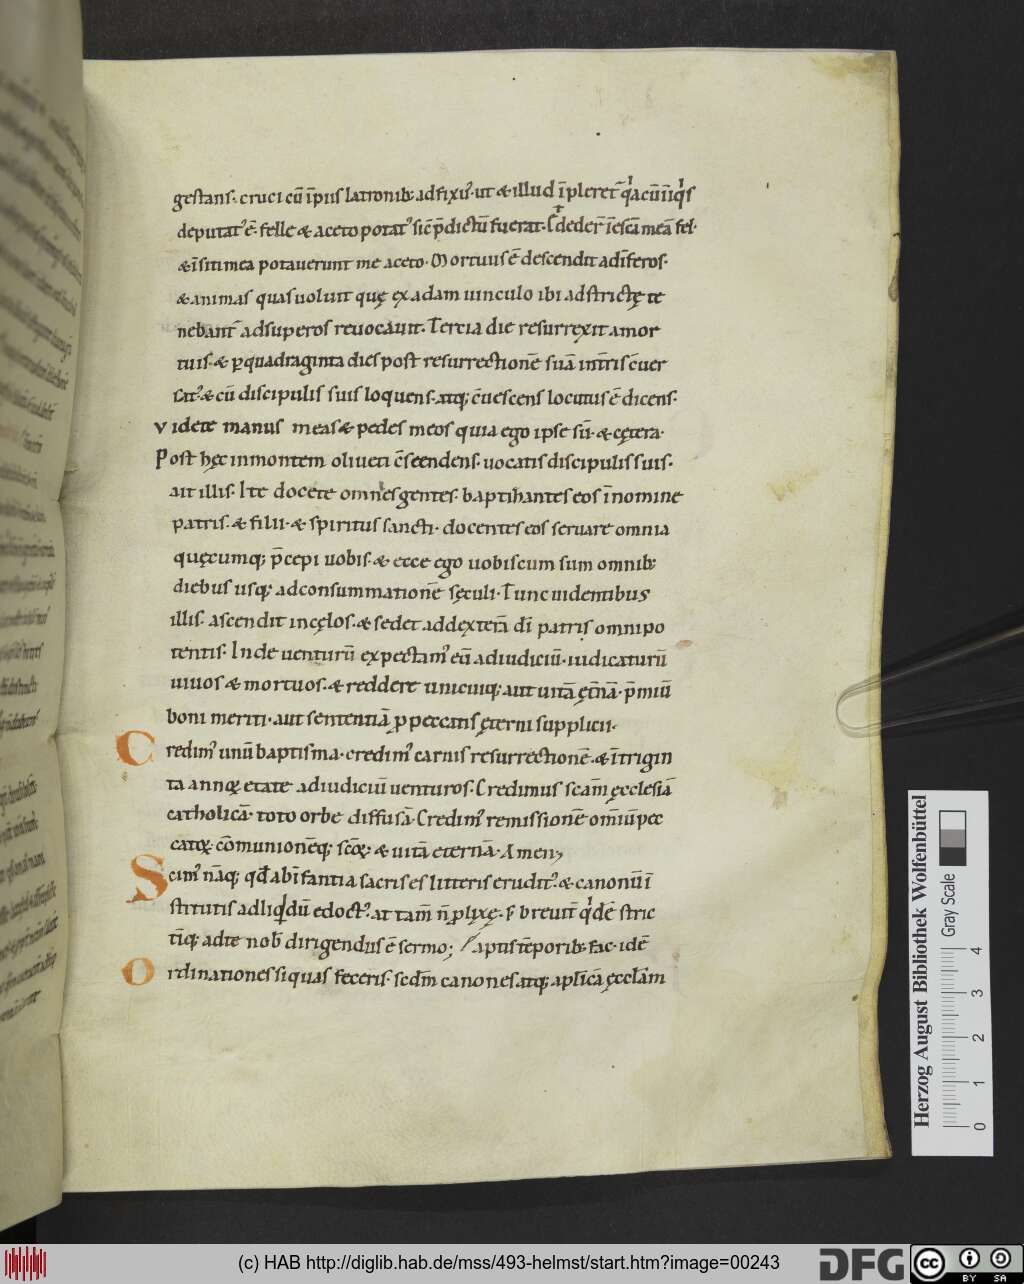 gestans. cruci cū īpiis latronib; adfixꝰ. ut & illud īpleret̄ qͥa cū iniqͥs
deputatꝰ ē. felle & aceto potatꝰ sic p̄dictū fuerat. dedert̄ īescā meā fel.
& īsiti mea potauerunt me aceto. Mortuus ē descendit ad īferos.
& animas quas uoluit quę ex adam uinculo ibi adstrictę te
nebant̄ ad superos reuocauit. Tercia die resurrexit a mor
tuis. & ꝑ quadraginta dies post resurrectionē suā int̄ris
satꝰ & cū discipulis suis loquens. atq; c̄uescens locutus ē dicens.
Videte manus meas & pedes meos quia ego ipse sū. & cętera.
Post hęc in montem oliueti c̄scendens. uocatis discipulis suis.
ait illis. Ite docete omnes gentes. baptizantes eos ī nomine
patris. & filii. & spiritus sancti. docentes eos seruare omnia
quęcumq; p̄cepi uobis. & ecce ego uobiscum sum omnib;
diebus usq; ad consummationē sęculi. Tunc uidentibus
illis. ascendit in cęlos. & sedet ad dexterā dī patris omnipo
tentis. Inde uenturū expectamꝰ eū ad iudiciū. iudicaturū
uiuos & mortuos. & reddere unicuiq; aut uitā ęt̄nā. p̄miū
boni meriti. aut sententiā ꝓ peccatis ęterni supplicii.
Credimꝰ unū baptisma. credimꝰ carnis resurrectionē. & ī trigin
ta annoꝝ etate ad iudiciū uenturos. Credimus scam̄ ęcclesiā
catholicā. toto orbe diffusā. Credimꝰ remissionē om̄iū pec
catoꝝ. cōmunionēq; scōꝝ. & uitā eternā. Amen;
Scimꝰ nāq; qđ ab īfantia sacris es litteris eruditꝰ. & canonū ī
stitutis ad liqͥdū edoctꝰ. at tam̄ n̄ ꝓlixę. s; breuit̄ qͥdē stric
tīq; ad te nob̄ dirigendus ē sermo; Aptis tēporib; fac. idē
Ordinationes si quas feceris. scdm̄ canones. atq; aplicā ęcclām
Herzog August Bibliothek Wolfenbüttel
Gray Scale
0 1 2 3 4
(c) HAB http://diglib.hab.de/mss/493-helmst/start.htm?image=00243
DFG
cc BY SA